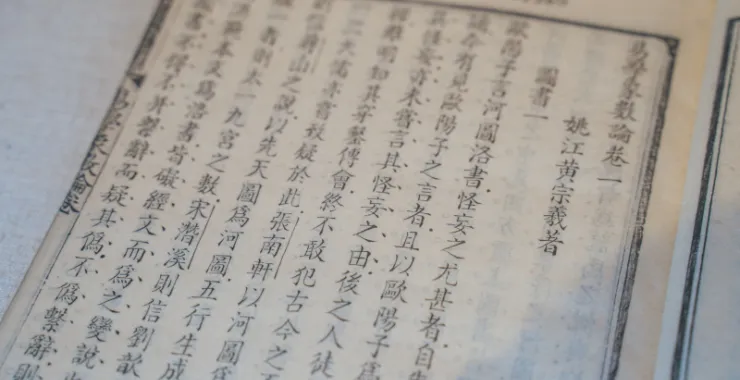 易學象數論卷一
姚江黃宗羲著
圖書一
歐陽子言河圖洛書怪妄之尤甚者自
誦今有見歐陽子之言者且以歐陽子爲
其怪妄亦未嘗言其怪妄之由後之人徒
雖明知其穿鑿傅會終不敢犯古今之不
一二大儒亦嘗致疑於此張南軒以河圖爲
信蔣山之說以先天圖爲河圖五行生成
一者則太一九宮之數宋潛溪則信劉歆
洪範本文爲洛書皆礙經文而爲之變說也
圖書不得不并繫辭而疑其僞不僞繫辭則
易學象數論卷